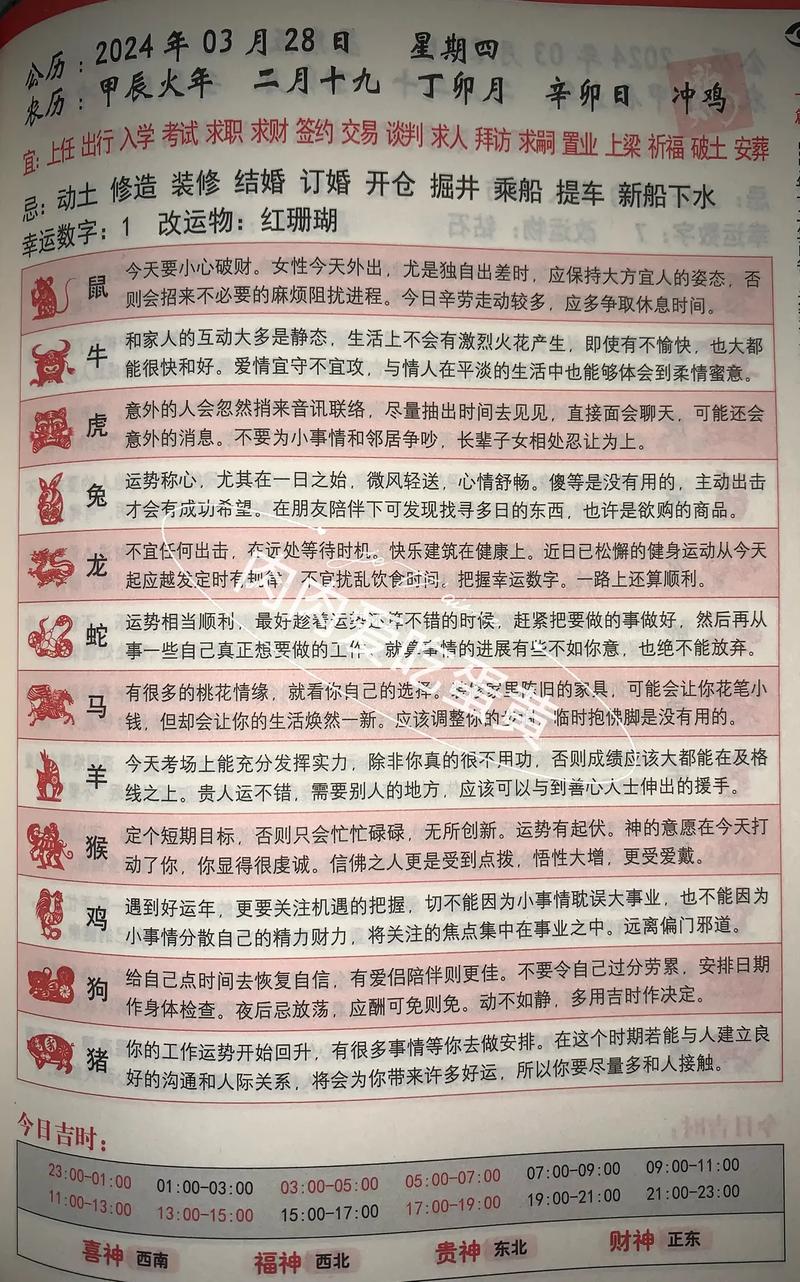 公历：2024年03月28日 星期四
农历：甲辰火年 二月十九 丁卯月 辛卯日 冲鸡
宜：上任 出行 入学 考试 求职 求财 签约 交易 谈判 求人 拜访 求嗣 置业 上梁 祈福 破土 安葬
忌：动土 修造 装修 结婚 订婚 开仓 掘井 乘船 提车 新船下水
幸运数字：1 改运物：红珊瑚
鼠
今天要小心破财。女性今天外出，尤是独自出差时，应保持大方宜人的姿态，否
则会招来不必要的麻烦阻扰进程。今日辛劳走动较多，应多争取休息时间。
牛
和家人的互动大多是静态，生活上不会有激烈火花产生，即使有不愉快，也大都
能很快和好。爱情宜守不宜攻，与情人在平淡的生活中也能够体会到柔情蜜意。
虎
意外的人会忽然捎来音讯联络，尽量抽出时间去见见，直接面会聊天，可能还会
意外的消息。不要为小事情和邻居争吵，长辈子女相处忍让为上。
兔
运势称心，尤其在一日之始，微风轻送，心情舒畅。傻等是没有用的，主动出击
才会有成功希望。在朋友陪伴下可发现找寻多日的东西，也许是欲购的商品。
龙
不宜任何出击，在远处等待时机。快乐建筑在健康上。近日已松懈的健身运动从今天
起应越发定时有规律，不宜扰乱饮食时间。把握幸运数字。一路上还算顺利。
蛇
运势相当顺利，最好趁着运势还算不错的时候，赶紧把要做的事做好，然后再从
事一些自己真正想要做的工作，就算事情的进展有些不如你意，也绝不能放弃。
马
有很多的桃花情缘，就看你自己的选择。家陈旧的家具，可能会让你花笔小
钱，但却会让你的生活焕然一新。应该调整你的，临时抱佛脚是没有用的。
羊
今天考场上能充分发挥实力，除非你真的很不用功，否则成绩应该大都能在及格
线之上。贵人运不错，需要别人的地方，应该可以与到善心人士伸出的援手。
猴
定个短期目标，否则只会忙忙碌碌，无所创新。运势有起伏。神的意愿在今天打
动了你，你显得很虔诚。信佛之人更是受到点拨，悟性大增，更受爱戴。
鸡
遇到好运年，更要关注机遇的把握，切不能因为小事情耽误大事业，也不能因为
小事情分散自己的精力财力，将关注的焦点集中在事业之中。远离偏门邪道。
狗
给自己点时间去恢复自信，有爱侣陪伴则更佳。不要令自己过分劳累，安排日期
作身体检查。夜后忌放荡，应酬可免则免。动不如静，多用吉时作决定。
猪
你的工作运势开始回升，有很多事情等你去做安排。在这个时期若能与人建立良
好的沟通和人际关系，将会为你带来许多好运，所以你要尽量多和人接触。
肉肉爱吃蛋黄
今日吉时：
23:00-01:00 01:00-03:00 03:00-05:00 05:00-07:00 07:00-09:00 09:00-11:00
11:00-13:00 13:00-15:00 15:00-17:00 17:00-19:00 19:00-21:00 21:00-23:00
喜神 西南 福神 西北 贵神 东北 财神 正东